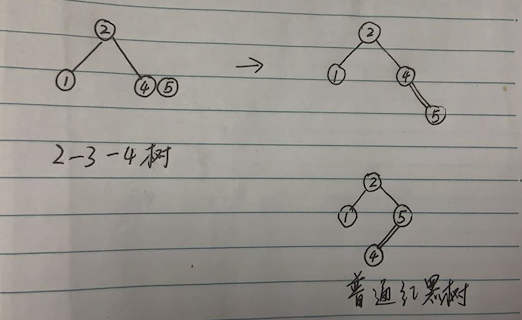 ② → ②
① ④⑤ ① ④
⑤
2-3-4树
②
① ⑤
④
普通红黑树